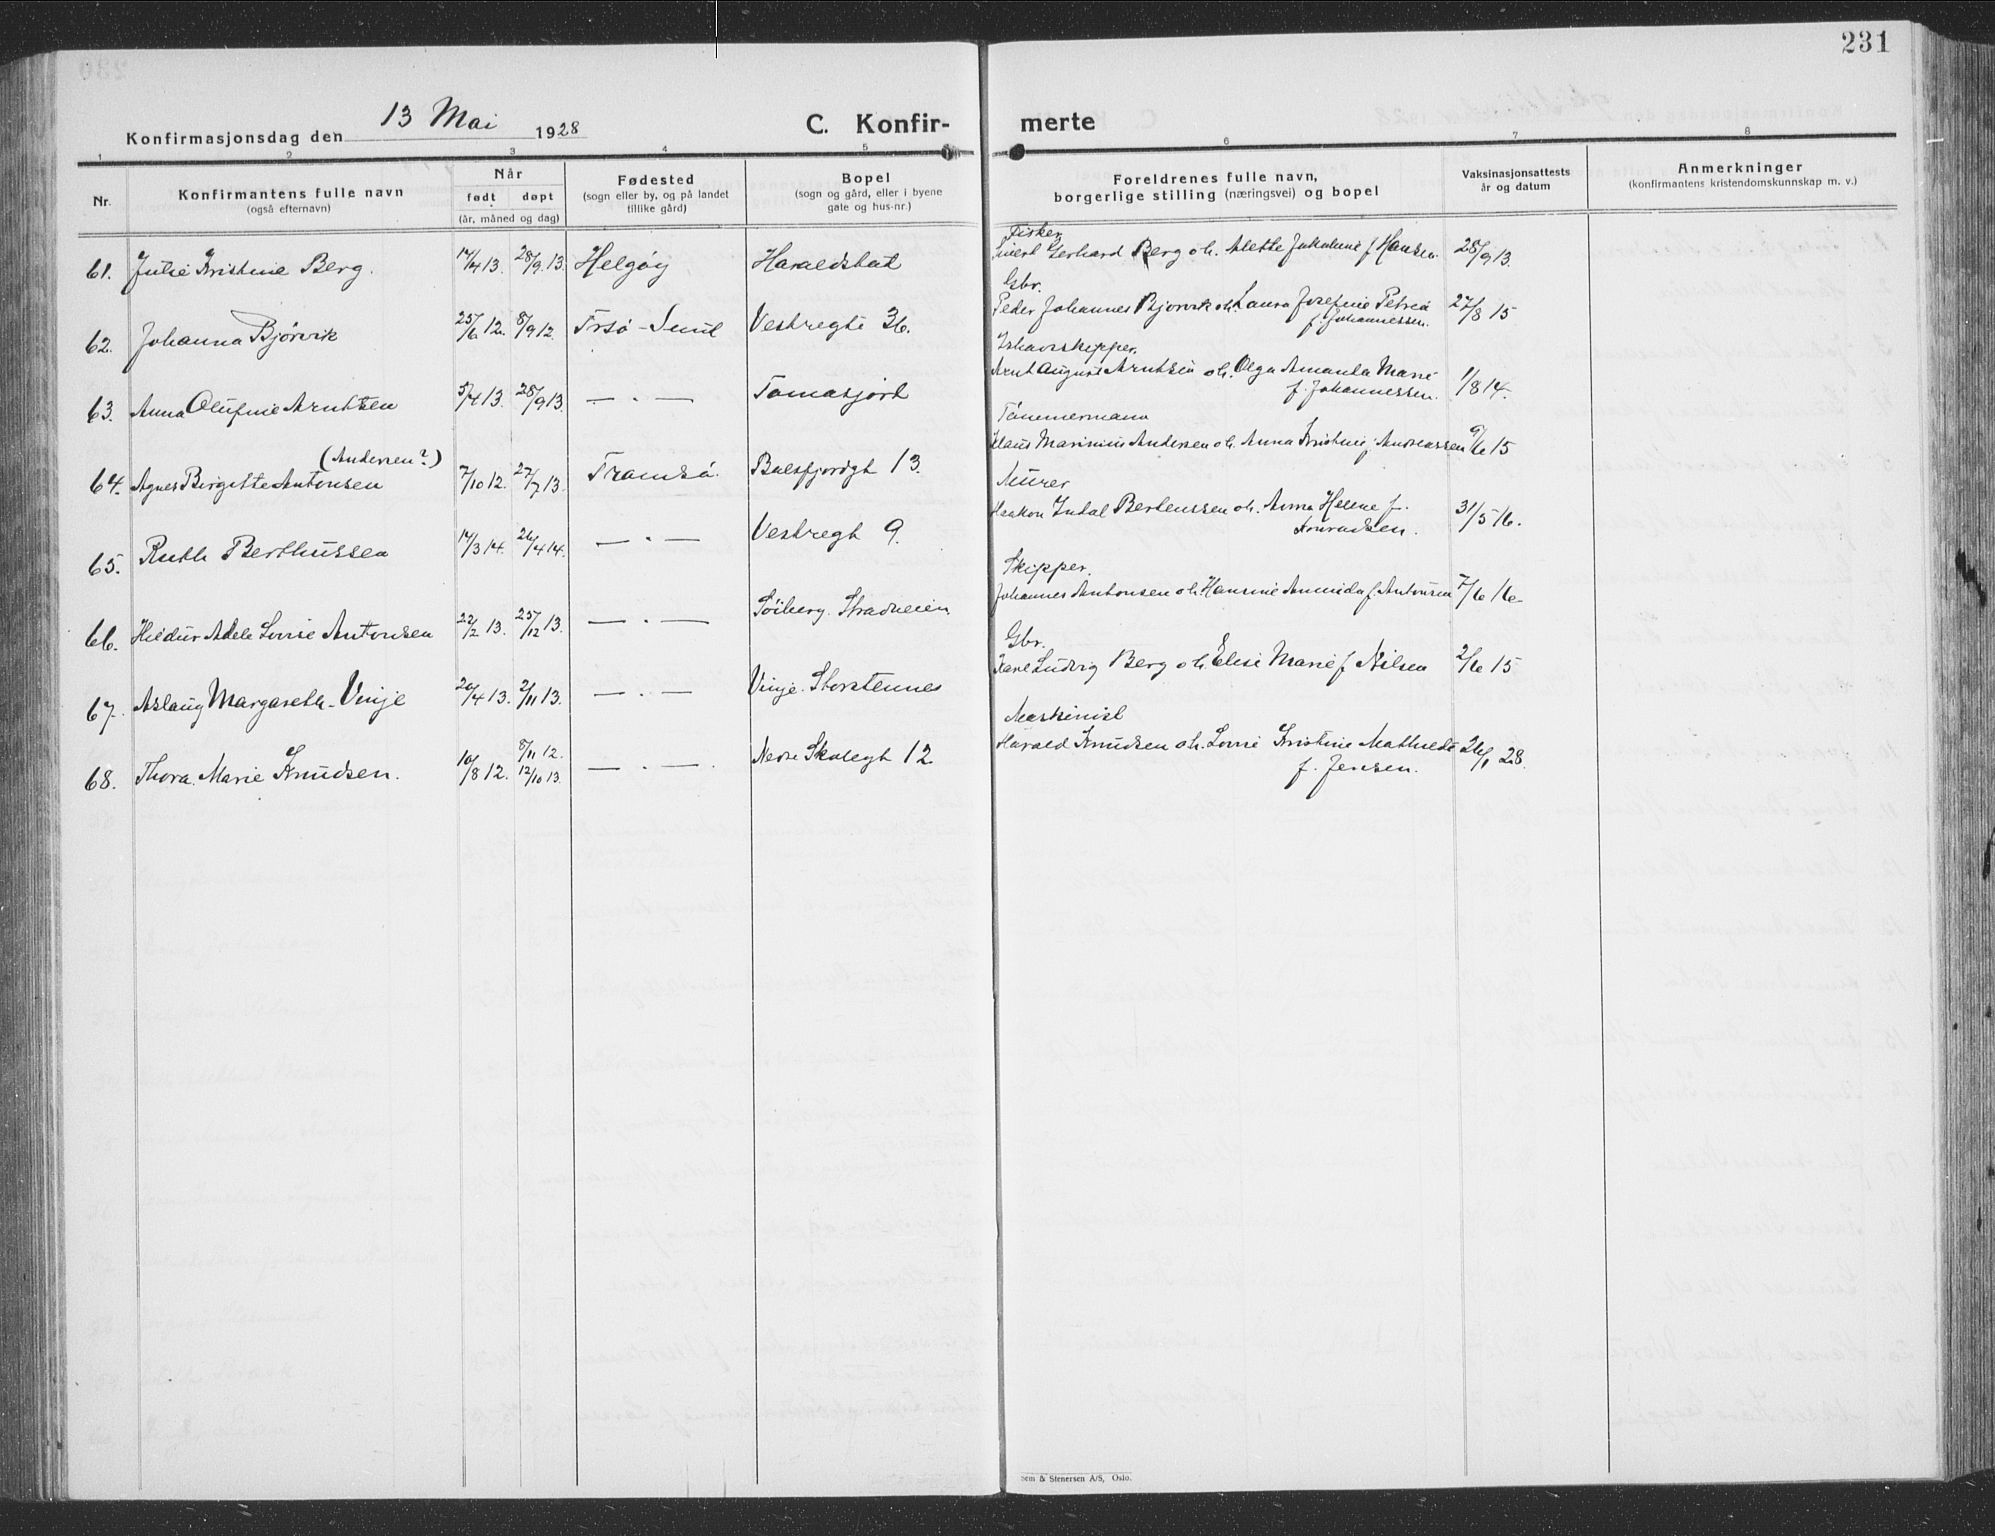 231
Konfirmasjonsdag den 13 Mai 1928
C. Konfir- merte
1 2 3 4 5 6 7 8
Nr.
Konfirmantens fulle navn
(også efternavn)
Når
født døpt
(år, måned og dag)
Fødested
(sogn eller by, og på landet
tillike gård)
Bopel
(sogn og gård, eller i byene
gate og hus-nr.)
Foreldrenes fulle navn,
borgerlige stilling (næringsvei) og bopel
Vaksinasjonsattests
år og datum
Anmerkninger
(konfirmantens kristendomskunnskap m. v.)
Fisker
61. Julie Kristine Berg. 17/4 13. 28/9 13. Helgøy Haraldstat Sivert Gerhard Berg oh. Alette Jakobine f Hansen. 28/9 13.
Gbr.
62. Johanna Bjørvik 25/6 12. 8/9 12. Trsø-Sund Vestregte 36. Peder Johannes Bjørvik oh. Laura Josefine Petrea 27/8 15
f. Johannessen.
Ishavsskipper.
63. Anna Olufine Arntsen 5/4 13. 28/9 13. — " — Tomasjord Arnt August Arntsen oh. Olga Amanda Marie 1/8 14.
f. Johannessen.
Tønnermann
(Andersen?)
64. Agnes Birgitte Antonsen 7/10 12. 27/7 13. Tromsø. Balsfjordgt 13. Klaus Marinius Andersen oh. Anna Kristine f. Andreassen 9/6 15
Murer
65. Ruth Berthussen 14/3 14. 26/4 14. — " — Vestregt 9. Haakon Indal Bertenssen oh. Anna Helene f. 31/5 16.
Konradsen.
Skipper.
66. Hildur Adele Lovise Antonsen 22/2 13. 25/12 13. — " — Søiberg. Strandveien Johannes Antonsen oh. Hansine Annida f. Antonsen 7/6 16
Gbr.
67. Aslaug Margareth Vinje 20/4 13. 2/11 13. — " — Vinje. Storstennes Karl Ludvig Berg oh. Elise Marie f Nilsen 2/6 15
Maskinist
68. Thora Marie Knudsen. 10/8 12. 8/11 12. 12/10 13. — " — Nedre Skolegt 12 Harald Knudsen oh. Lovise Kristine Mathilde 26/1 28.
f. Jensen.
Sem & Stenersen A/S, Oslo.